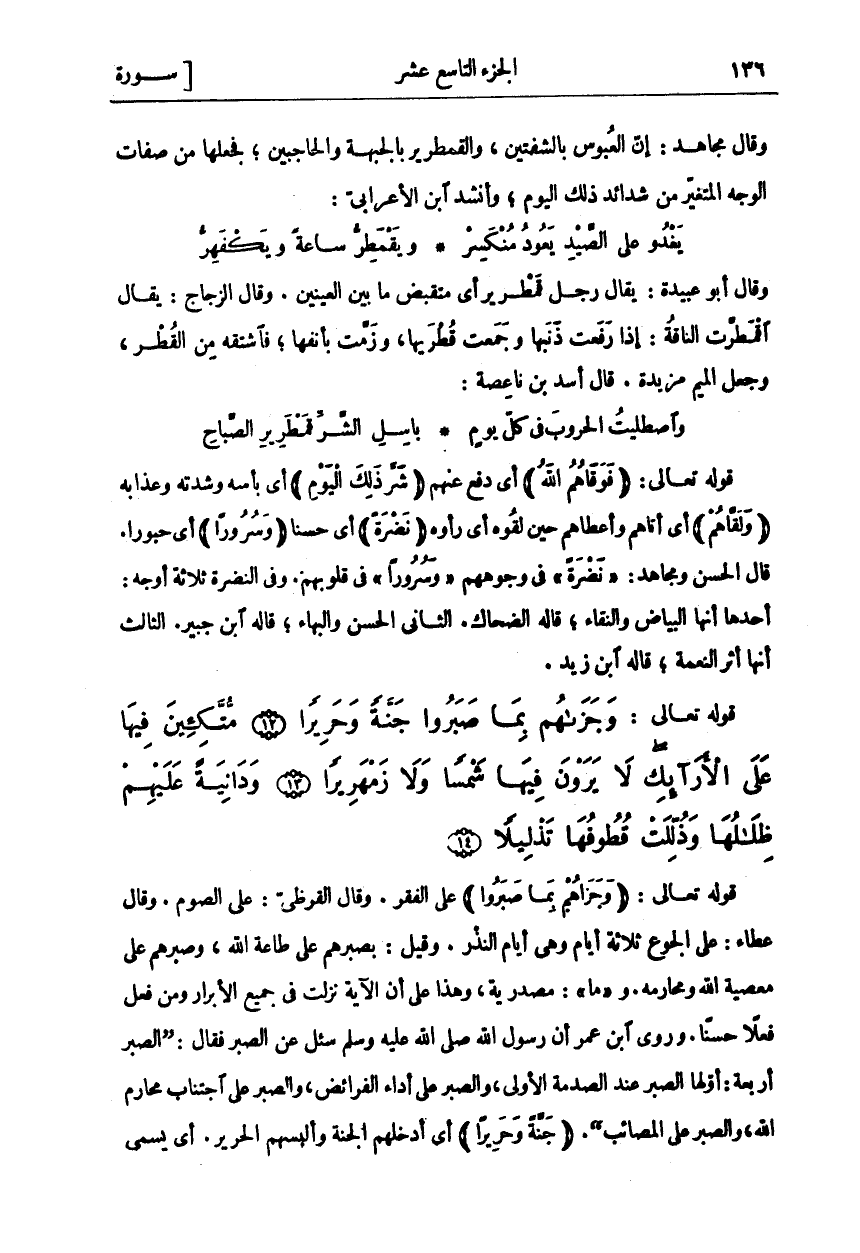 ١٣٦ الجزء التاسع عشر [ ســورة
وقال مجاهــد : إنّ العُبوس بالشفتين ، والقمطرير بالجبهة والحاجبين ؛ فجعلها من صفات
الوجه المتغيّر من شدائد ذلك اليوم ؛ وأنشد آبن الأعرابىّ :
يَغْدُو على الصَّيْدِ يَعُودُ مُنْكَسِرْ * ويَقْمَطِرُّ ساعةً ويَكْفَهِرُّ
وقال أبو عبيدة : يقال رجل قَمْطَرير أى متقبض ما بين العينين . وقال الزجاج : يقال
آقْمَطَرَّت الناقةُ : إذا رَفَعت ذَنَبها وجَمَعت قُطْرَيها، وزَمَّت بأنفها ؛ فآشتقه مِن القُطْر ،
وجعل الميم مزيدة . قال أسد بن ناعِصة :
وآصطليتُ الحروبَ فى كلّ يومٍ * باسِلِ الشَّرِّ قَمْطَرِيرِ الصَّباحِ
قوله تعالى: ﴿ فَوَقَاهُمُ اللّٰهُ ﴾ أى دفع عنهم ﴿ شَرَّ ذَلِكَ الْيَوْمِ ﴾ أى بأسه وشدته وعذابه
﴿ وَلَقَّاهُمْ ﴾ أى أتاهم وأعطاهم حين لقُوه أى رأوه ﴿ نَضْرَةً ﴾ أى حسنا ﴿ وَسُرُورًا ﴾ أى حبورا.
قال الحسن ومجاهد: «نَضْرَةً» فى وجوههم «وسُرُوراً» فى قلوبهم. وفى النضرة ثلاثة أوجه :
أحدها أنها البياض والنقاء ؛ قاله الضحاك. الثانى الحسن والبهاء ؛ قاله آبن جبير. الثالث
أنها أثر النعمة ؛ قاله آبن زيد .
قوله تعالى : وَجَزَىٰهُم بِمَا صَبَرُوا جَنَّةً وَحَرِيرًا ﴿١٢﴾ مُّتَّكِئِينَ فِيهَا
عَلَى الْأَرَآئِكِ ۖ لَا يَرَوْنَ فِيهَا شَمْسًا وَلَا زَمْهَرِيرًا ﴿١٣﴾ وَدَانِيَةً عَلَيْهِمْ
ظِلَـٰلُهَا وَذُلِّلَتْ قُطُوفُهَا تَذْلِيلًا ﴿١٤﴾
قوله تعالى : ﴿ وَجَزَاهُمْ بِمَا صَبَرُوا ﴾ على الفقر . وقال القرظىّ : على الصوم . وقال
عطاء : على الجوع ثلاثة أيام وهى أيام النذْر . وقيل : بصبرهم على طاعة الله ، وصبرهم على
معصية الله ومحارمه. و «ما» : مصدرية ، وهذا على أن الآية نزلت فى جميع الأبرار ومن فعل
فعلًا حسنًا. وروى آبن عمر أن رسول الله صلى الله عليه وسلم سئل عن الصبر فقال : "الصبر
أربعة : أوّلها الصبر عند الصدمة الأولى، والصبر على أداء الفرائض، والصبر على آجتناب محارم
الله، والصبر على المصائب". ﴿ جَنَّةً وَحَرِيرًا ﴾ أى أدخلهم الجنة وألبسهم الحرير . أى يسمى